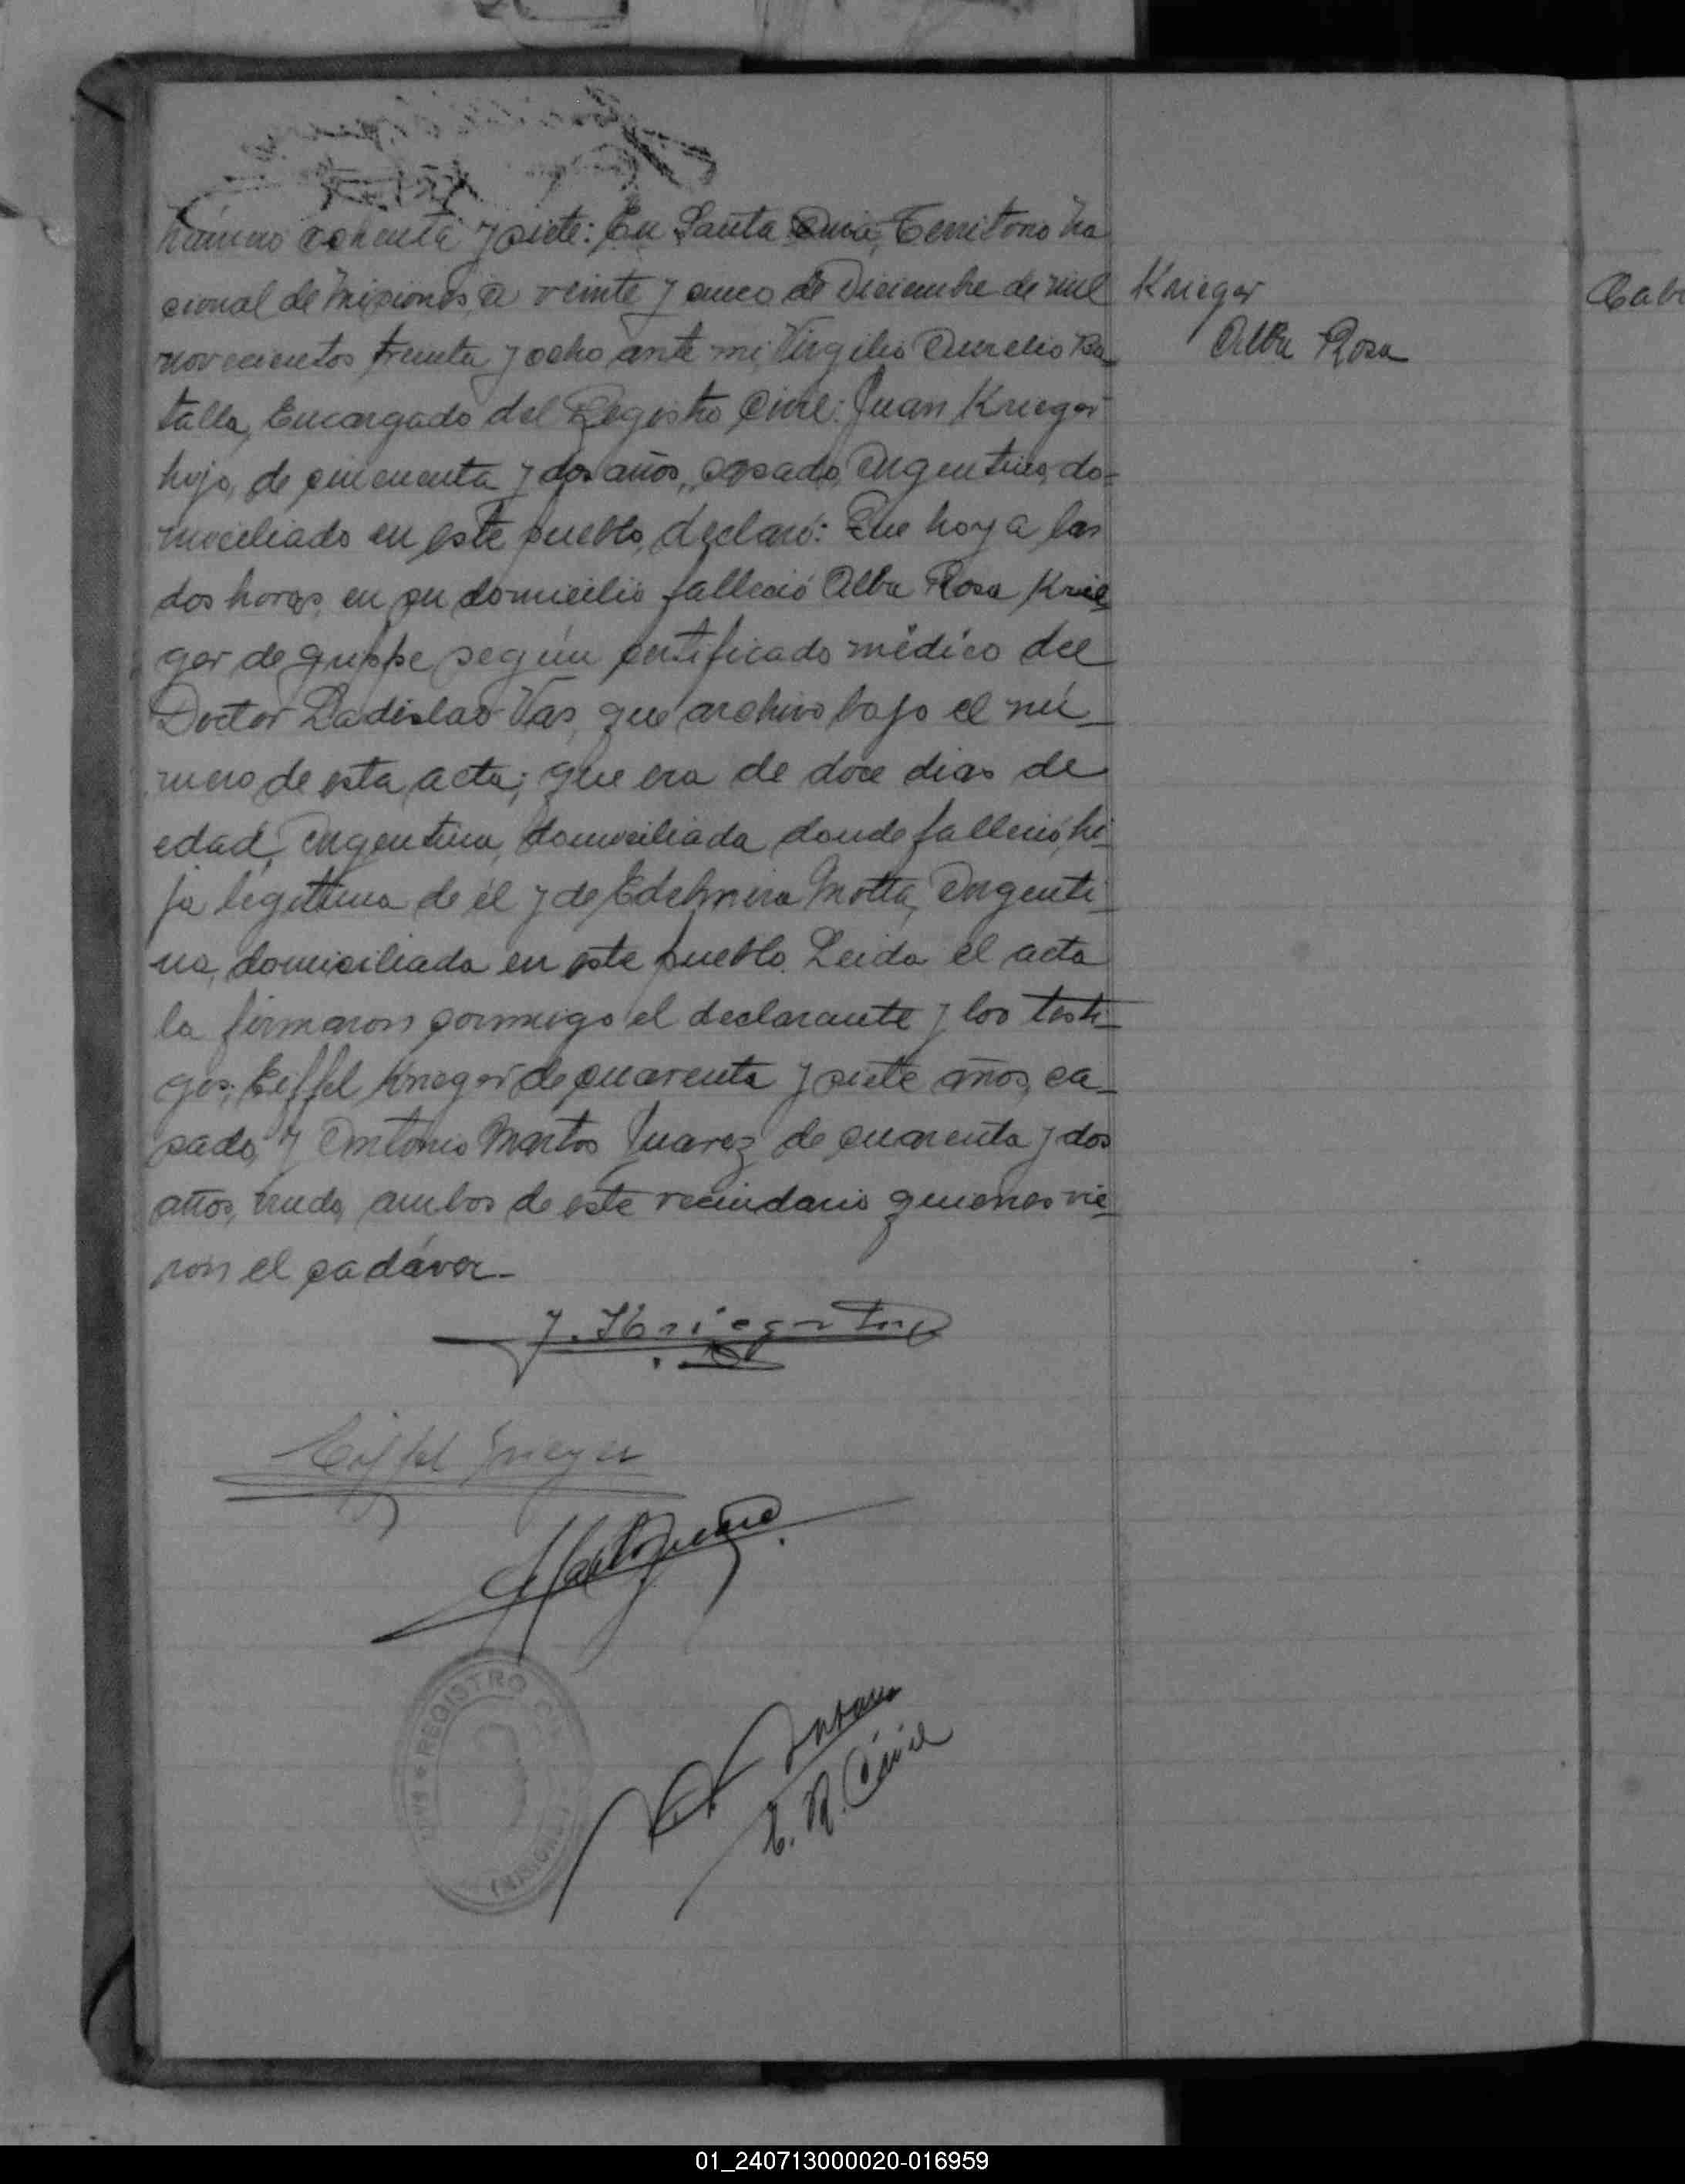 número ochenta y siete: En Santa Ana, Territorio Na
cional de Misiones, a veinte y cinco de Diciembre de mil
novecientos treinta y ocho ante mi, Virgilio Aurelio Ba-
talla, Encargado del Registro Civil: Juan Krieger
hijo, de cincuenta y dos años, casado, Argentino, do=
miciliado en este pueblo, declaró: Que hoy a las
dos horas, en su domicilio falleció Alba Rosa Krie
ger de grippe según certificado médico del
Doctor Ladislao Vas, que archivo bajo el nú-
mero de esta acta; que era de doce dias de
edad, Argentina, domiciliada donde falleció, hi-
ja legitima de él y de Edelmira Motta, Argenti-
na, domiciliada en este pueblo. Leida el acta
la firmaron conmigo el declarante y los testi-
gos; Eiffel Krieger de cuarenta y siete años, ca-
sado, y Antonio Martos Juarez de cuarenta y dos
años, viudo, ambos de este vecindario quienes vie-
ron el cadáver.-
Krieger
Alba Rosa
Cab
J. Krieger
Eiffel Krieger
E. R. Civil
REGISTRO CIVIL
(MISIONES)
01_240713000020-016959